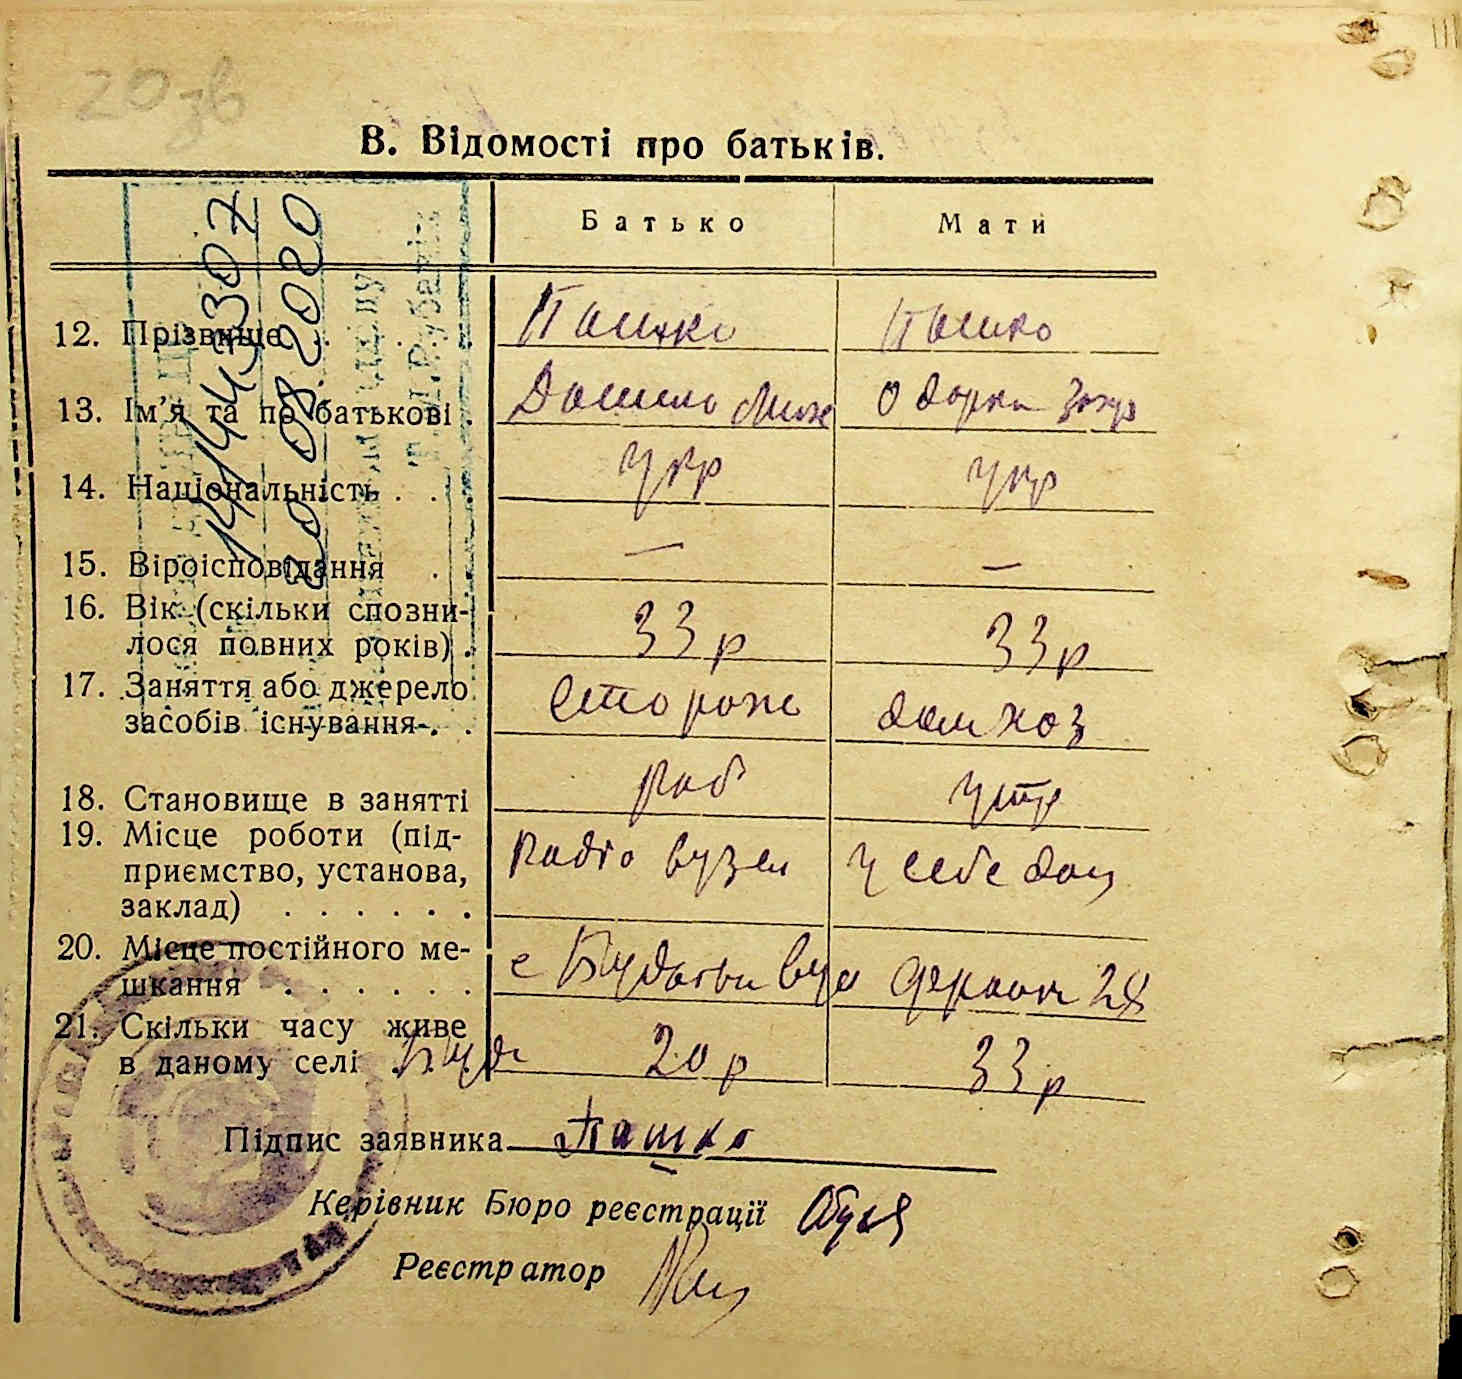 20 зв
В. Відомості про батьків.
Батько Мати
12. Прізвище . . . . . Пашко Пашко
13. Ім'я та по батькові . Данило Мих Одарка Захар
14. Національність . . . укр укр
15. Віроісповідання . . — —
16. Вік (скільки сповни-
лося повних років) . 33 р 33 р
17. Заняття або джерело
засобів існування . . Сторож домхоз
18. Становище в занятті роб утр
19. Місце роботи (під-
приємство, установа,
заклад) . . . . . . Радіо вузел у себе дом
20. Місце постійного ме-
шкання . . . . . . с вул 28
21. Скільки часу живе
в даному селі 20 р 33 р
Підпис заявника Пашко
Керівник Бюро реєстрації
Реєстратор
1414307
20 08 2020